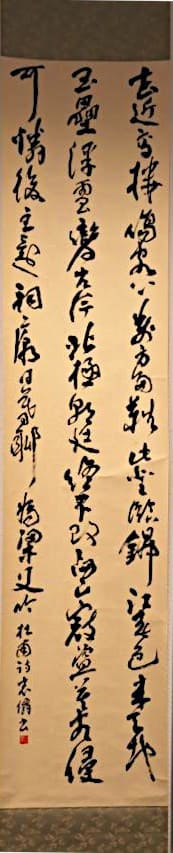 花近高樓傷客心萬方多難此登臨錦江春色來天地
玉壘浮雲變古今北極朝廷終不改西山寇盜莫相侵
可憐後主還祠廟日暮聊為梁父吟 杜甫詩 書